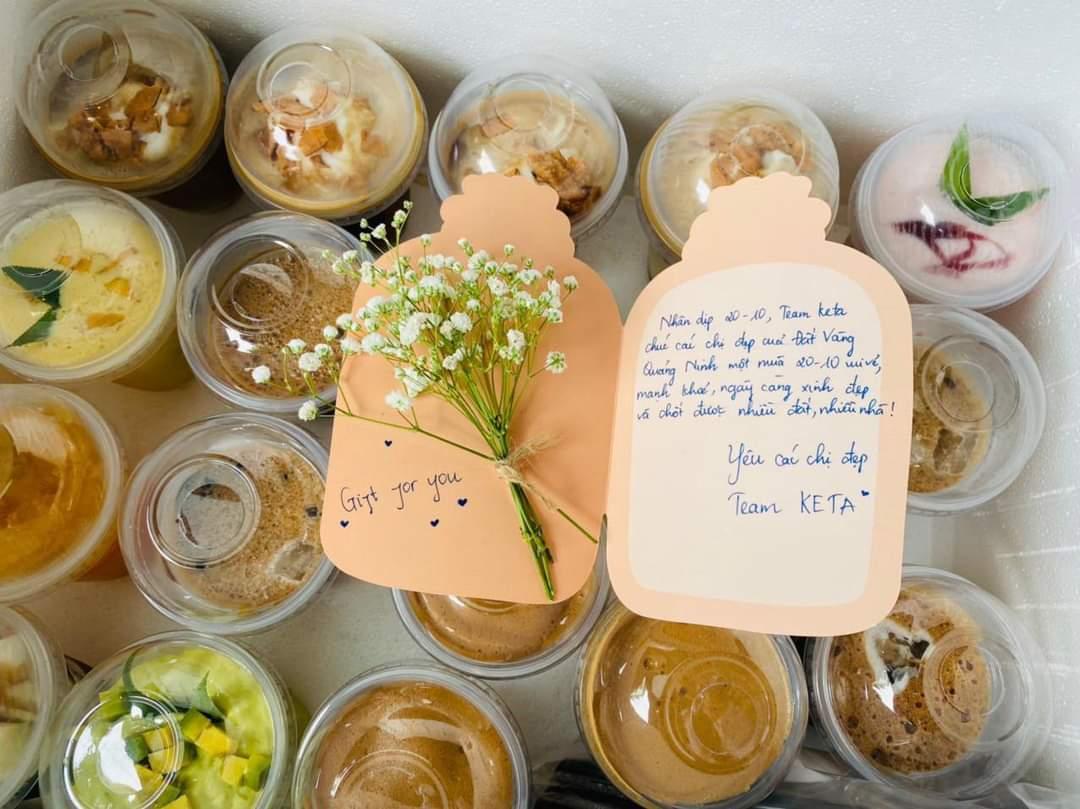 Gift for you
Nhân dịp 20-10, Team keta
chúc các chị đẹp của Đất Vàng
Quảng Ninh một mùa 20-10 vui vẻ,
mạnh khoẻ, ngày càng xinh đẹp
và chốt được nhiều đất, nhiều nhà!
Yêu các chị đẹp
Team KETA